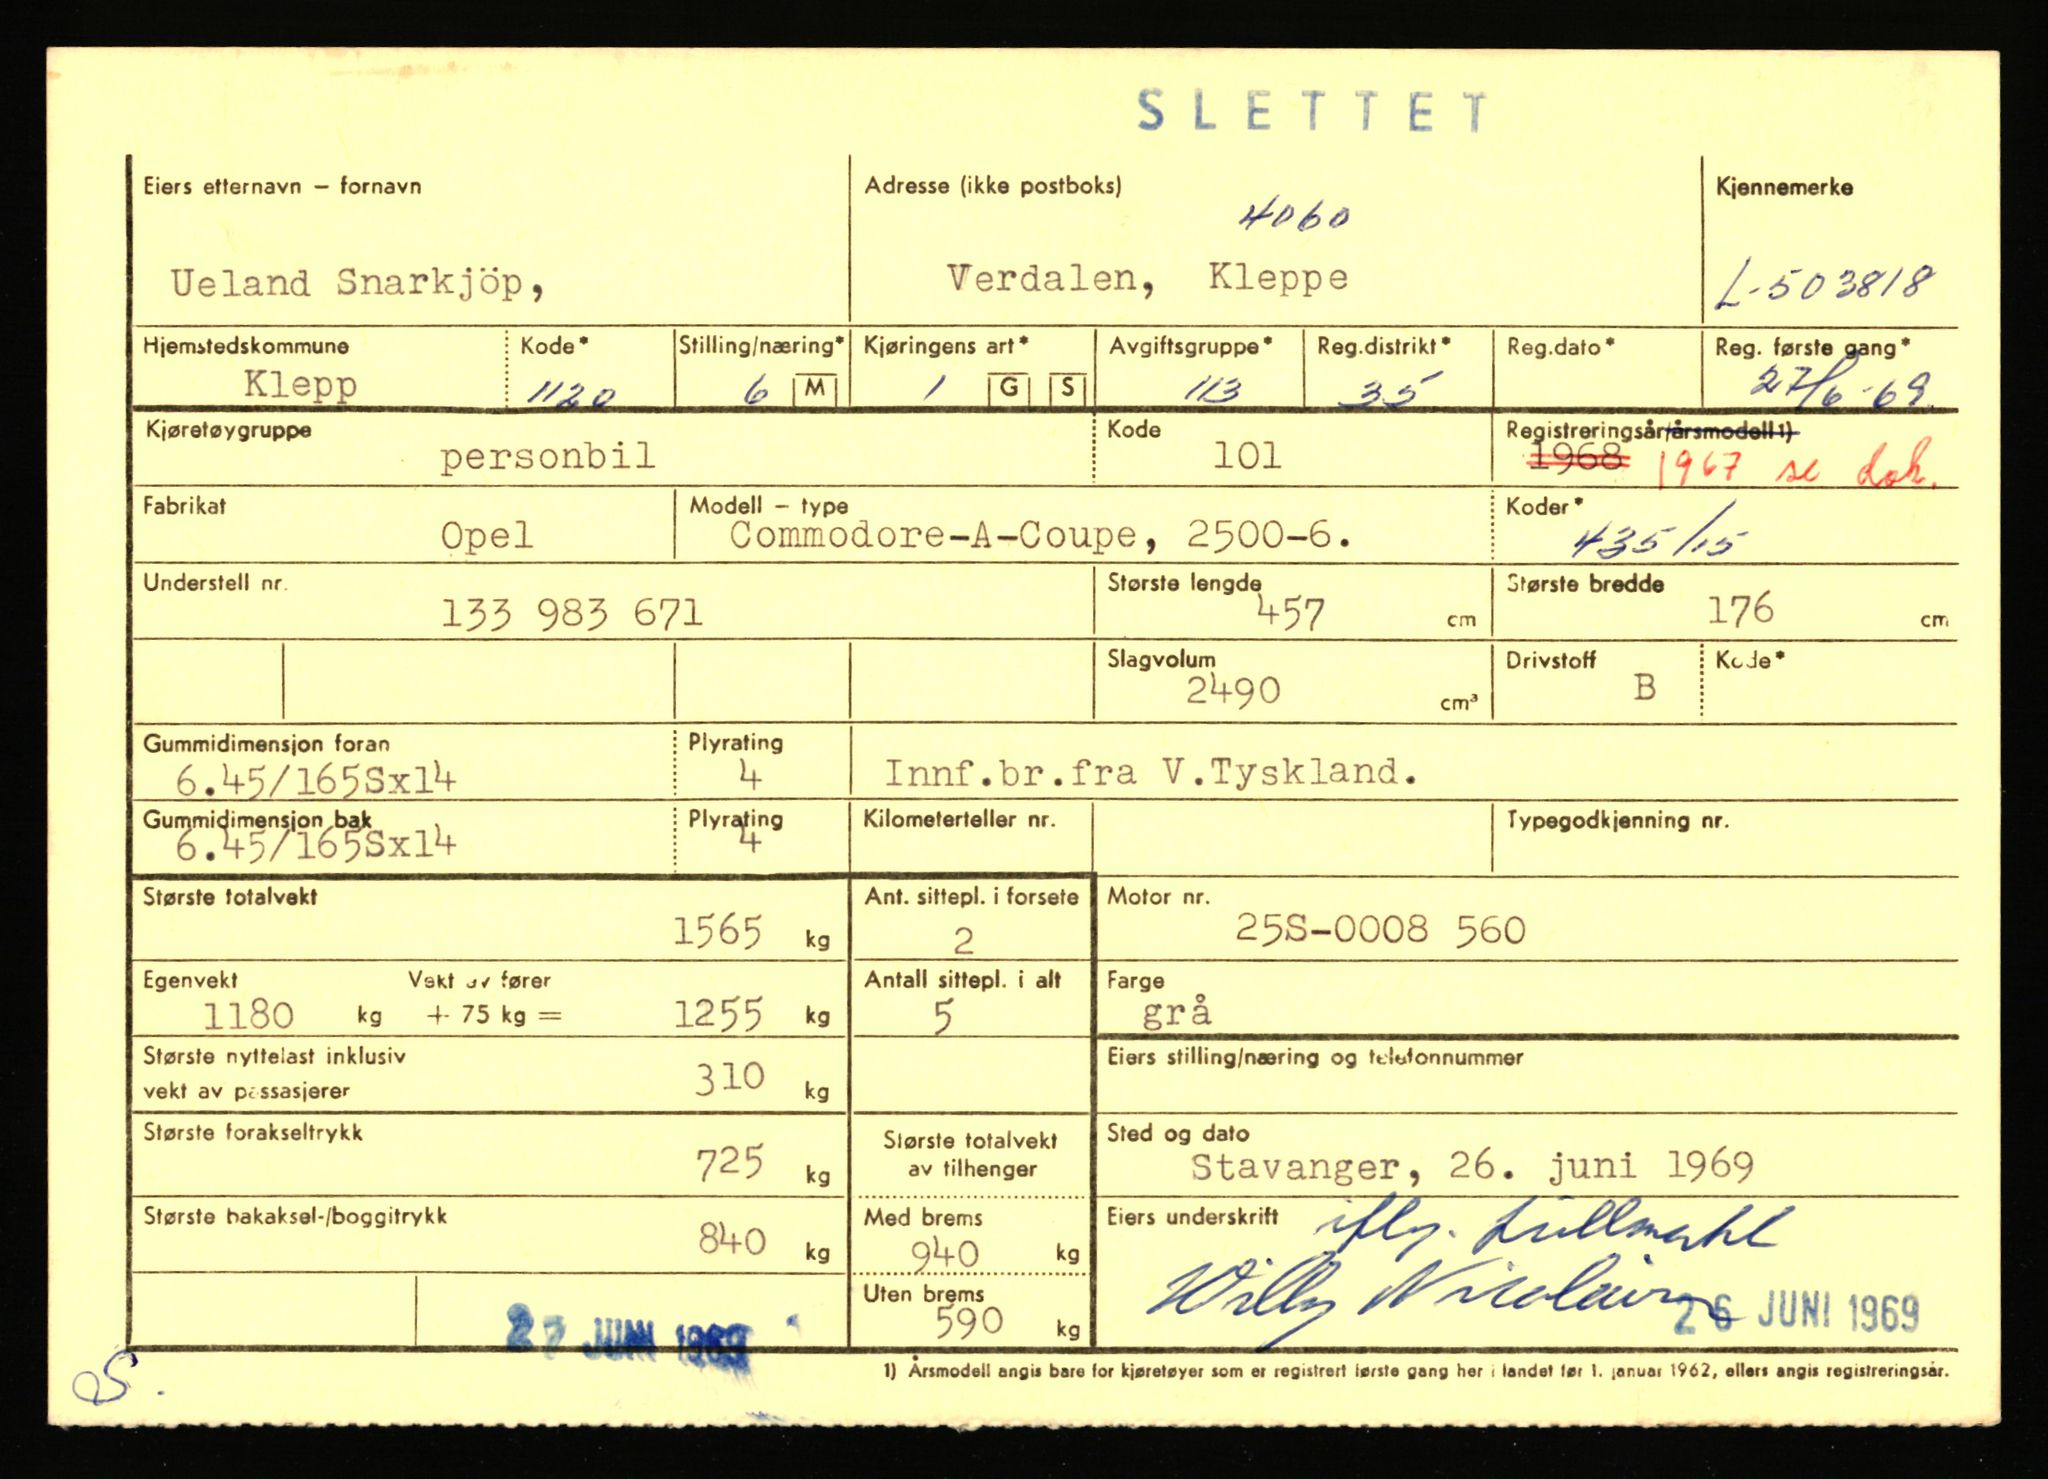 SLETTET
Eiers etternavn – fornavn
Adresse (ikke postboks)
Kjennemerke
4060
Ueland Snarkjöp,
Verdalen, Kleppe
L-503818
Hjemstedskommune
Kode*
Stilling/næring*
Kjøringens art*
Avgiftsgruppe*
Reg.distrikt*
Reg.dato*
Reg. første gang*
Klepp
1120
6 M
1 G S
113
35
27/6-69.
Kjøretøygruppe
Kode
Registreringsår/årsmodell 1)
personbil
101
1968 1967 se dok.
Fabrikat
Modell – type
Koder*
Opel
Commodore-A-Coupe, 2500-6.
435/15
Understell nr.
Største lengde
Største bredde
133 983 671
457 cm
176 cm
Slagvolum
Drivstoff
Kode*
2490 cm³
B
Gummidimensjon foran
Plyrating
6.45/165Sx14
4
Innf.br.fra V.Tyskland.
Gummidimensjon bak
Plyrating
Kilometerteller nr.
Typegodkjenning nr.
6.45/165Sx14
4
Største totalvekt
Ant. sittepl. i forsete
Motor nr.
1565 kg
2
25S-0008 560
Egenvekt
Vekt av fører
Antall sittepl. i alt
Farge
1180 kg
+ 75 kg =
1255 kg
5
grå
Største nyttelast inklusiv
vekt av passasjerer
310 kg
Eiers stilling/næring og telefonnummer
Største forakseltrykk
725 kg
Største totalvekt
av tilhenger
Sted og dato
Stavanger, 26. juni 1969
Største bakaksel-/boggitrykk
840 kg
Med brems
940 kg
Eiers underskrift
Willy
Uten brems
590 kg
26 JUNI 1969
27 JUNI 1969
1) Årsmodell angis bare for kjøretøyer som er registrert første gang her i landet før 1. januar 1962, ellers angis registreringsår.
S.